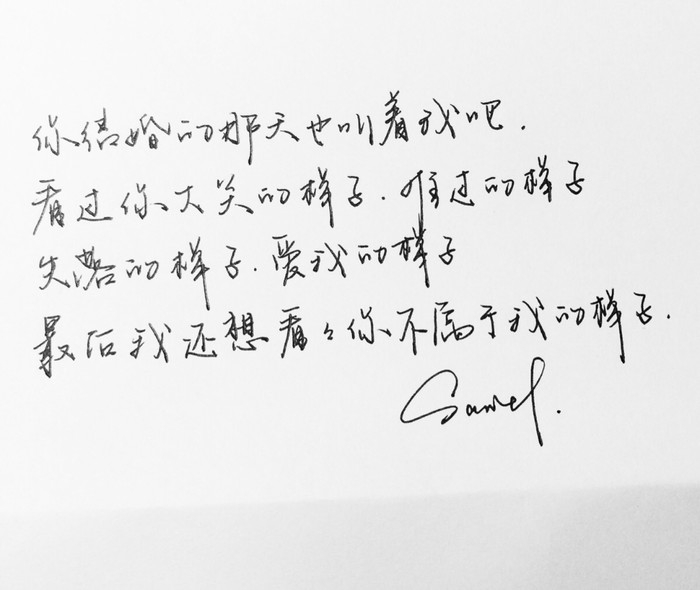 你结婚的那天也叫着我吧.
看过你大笑的样子.难过的样子
失落的样子.爱我的样子
最后我还想看々你不属于我的样子.